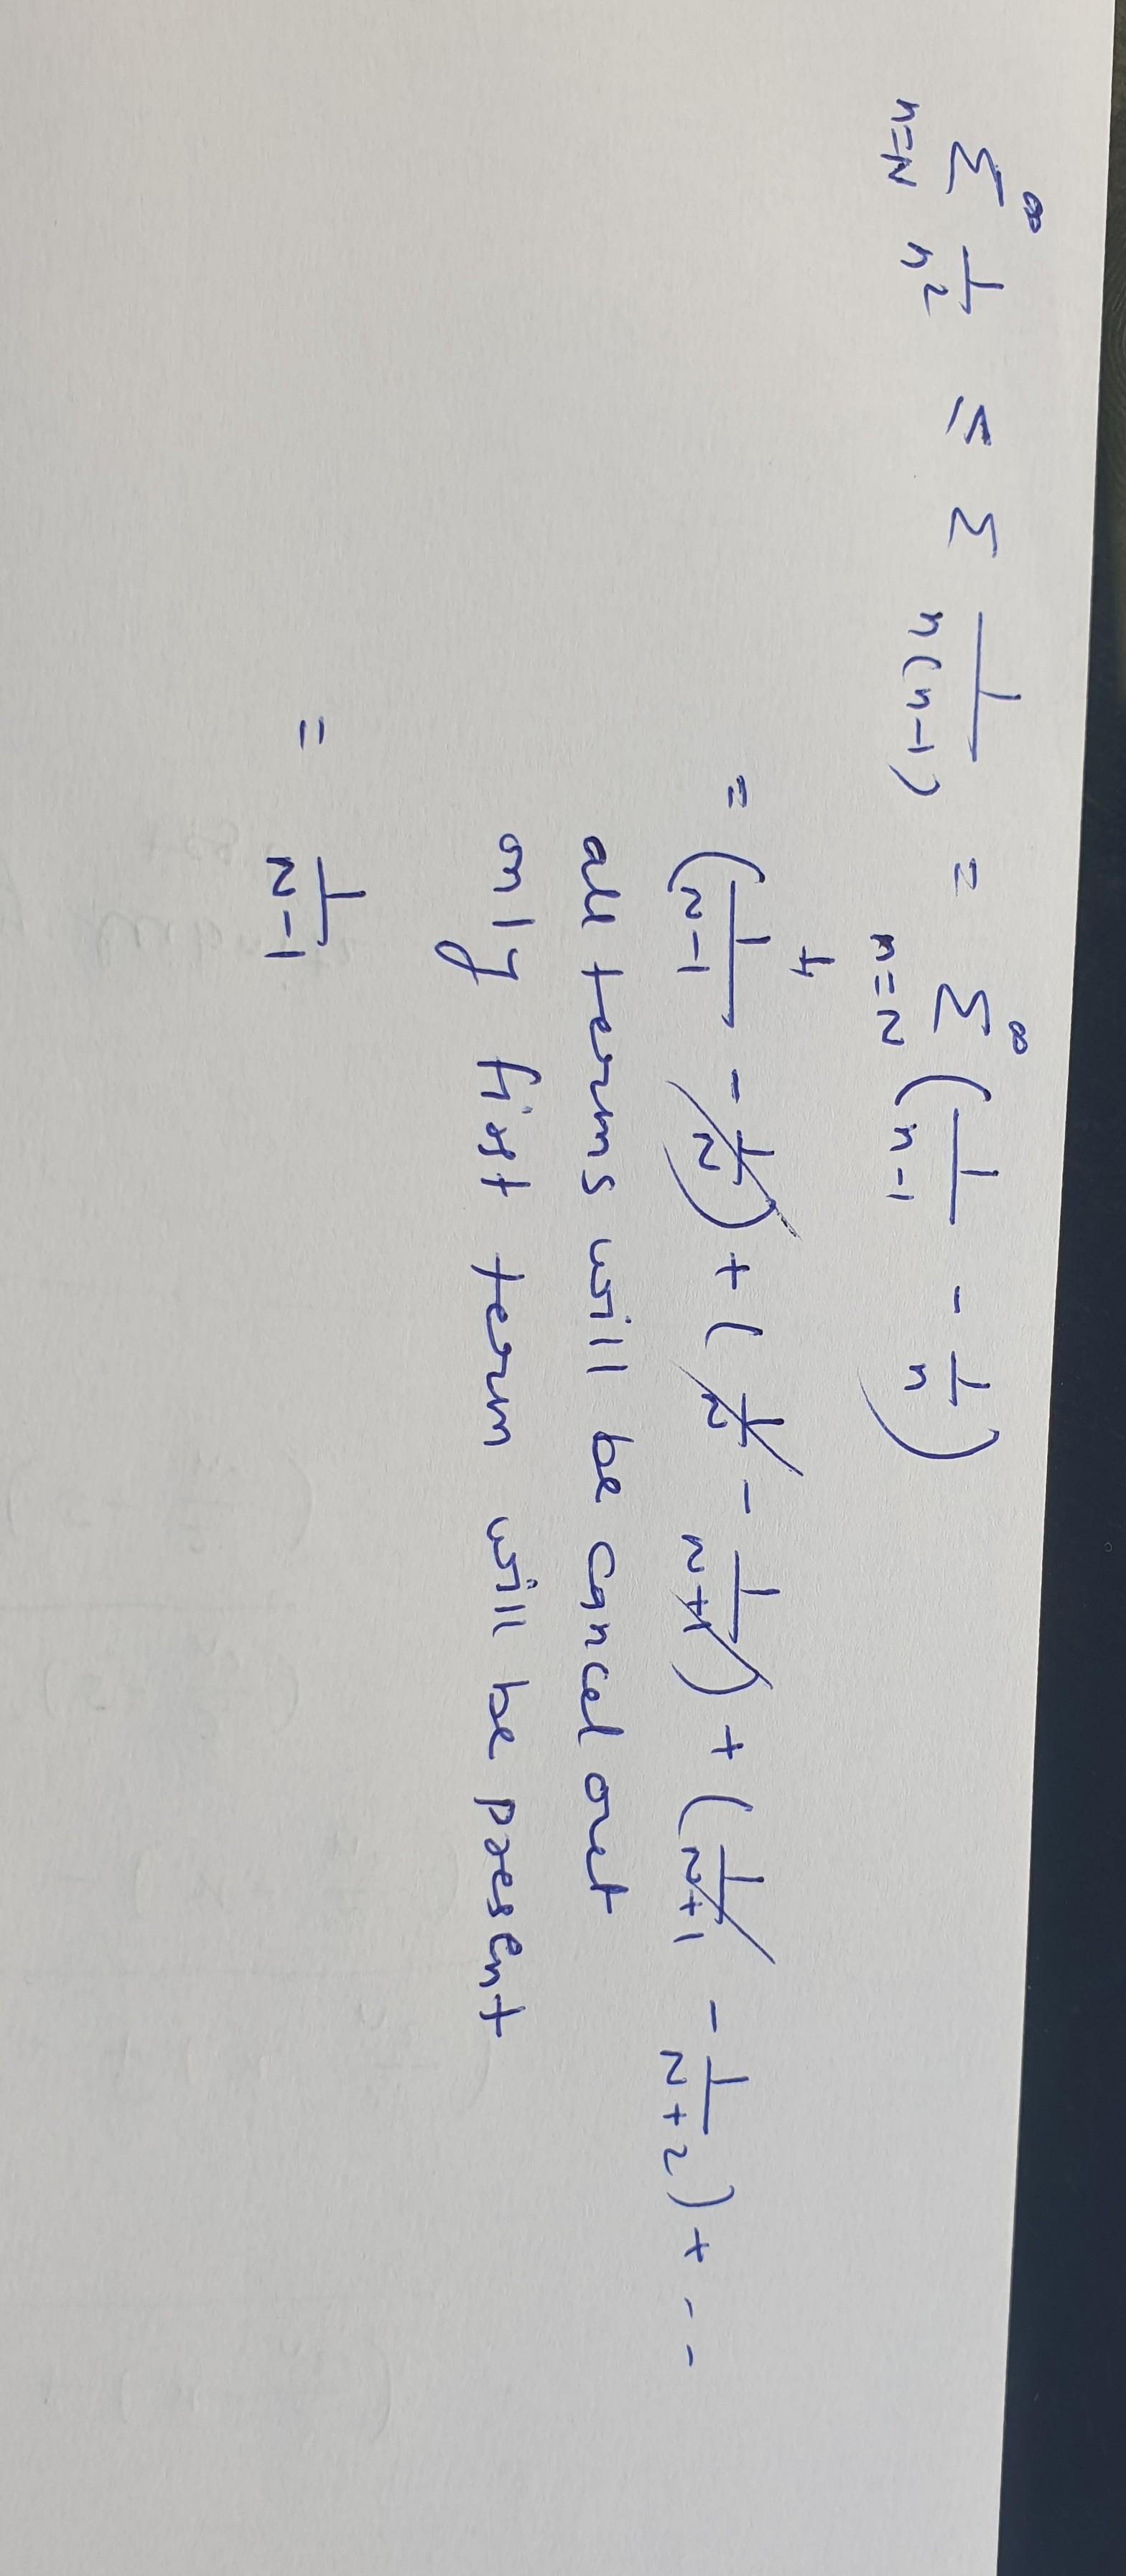 ∞∑n=N 1/n² ≤ ∑ 1/n(n-1) = ∞∑n=N (1/n-1 - 1/n)
= (1/N-1 - 1/N) + (1/N - 1/N+1) + (1/N+1 - 1/N+2) + ---
all terms will be cancel out
only first term will be present
= 1/N-1